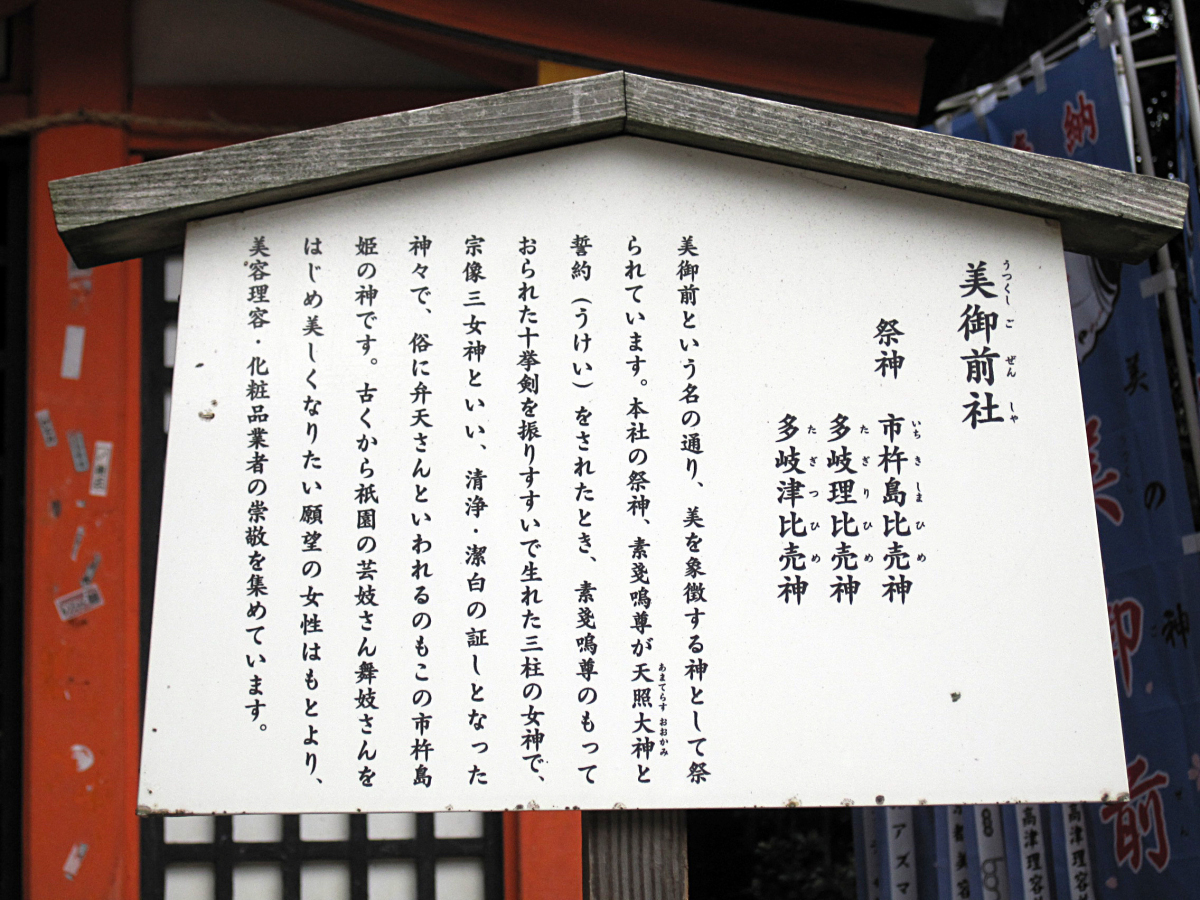 美御前社
うつくし ご ぜん しゃ
祭神
市杵島比売神
いち き しま ひ め
多岐理比売神
た ぎ り ひ め
多岐津比売神
た ぎ つ ひ め
美御前という名の通り、美を象徴する神として祭
られています。本社の祭神、素戔嗚尊が天照大神と
あまてらす おおかみ
誓約(うけい)をされたとき、素戔嗚尊のもって
おられた十挙剣を振りすすいで生れた三柱の女神で、
宗像三女神といい、清浄・潔白の証しとなった
神々で、俗に弁天さんといわれるのもこの市杵島
姫の神です。古くから祇園の芸妓さん舞妓さんを
はじめ美しくなりたい願望の女性はもとより、
美容理容・化粧品業者の崇敬を集めています。
納
美の神
美御前
高津理容
高津理容
アズマ